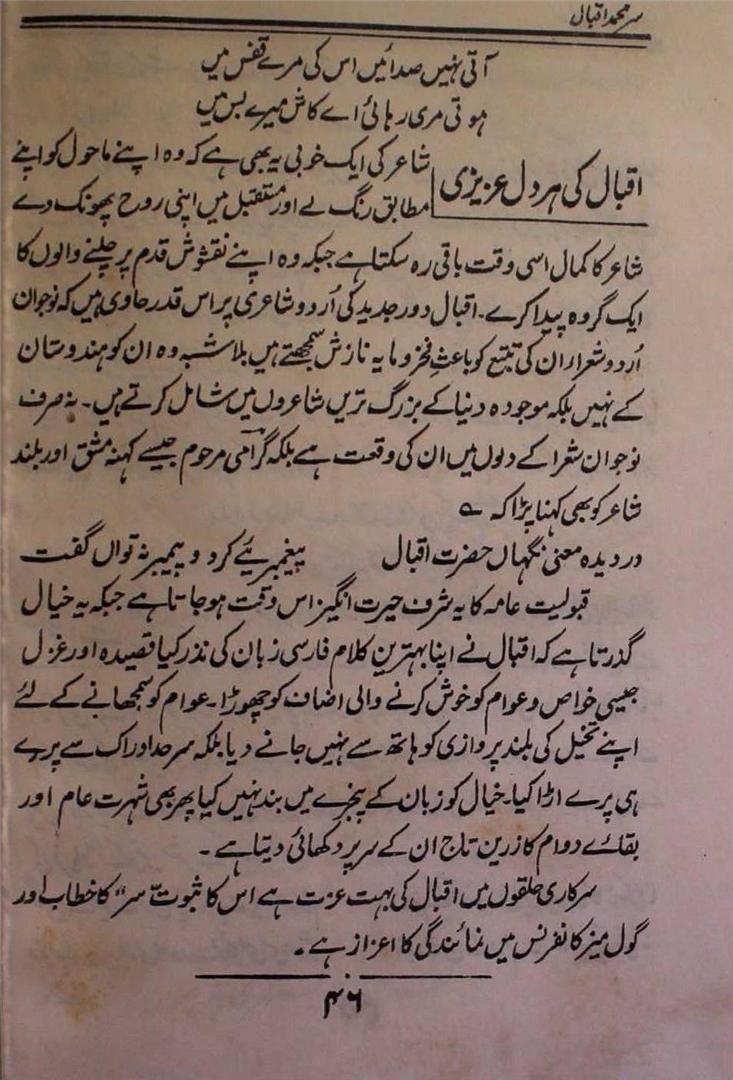 سر محمد اقبال
آتی نہیں صدائیں اس کی مرے قفس میں
ہوتی مری رہائی اے کاش میرے بس میں
اقبال کی ہر دل عزیزی
شاعر کی ایک خوبی یہ بھی ہے کہ وہ اپنے ماحول کو اپنے
مطابق رنگ لے اور مستقبل میں اپنی روح پھونک دے
شاعر کا کمال اسی وقت باقی رہ سکتا ہے جبکہ وہ اپنے نقوش قدم پر چلنے والوں کا
ایک گروہ پیدا کرے۔ اقبال دور جدید کی اُردو شاعری پر اس قدر حاوی ہیں کہ نوجوان
اُردو شعرا ان کی تتبع کو باعثِ فخر و مایہ نازش سمجھتے ہیں بلا شبہ وہ ان کو ہندوستان
کے نہیں بلکہ موجودہ دنیا کے بزرگ ترین شاعروں میں شامل کرتے ہیں۔ نہ صرف
نوجوان شعرا کے دلوں میں ان کی وقعت ہے بلکہ گرامی مرحوم جیسے کہنہ مشق اور بلند
شاعر کو بھی کہنا پڑا کہ ؎
در دیدہ معنی نگہاں حضرت اقبال پیغمبریئے کرد و پیمبر نہ تواں گفت
قبولیت عامہ کا یہ شرف حیرت انگیز اس وقت ہو جاتا ہے جبکہ یہ خیال
گذرتا ہے کہ اقبال نے اپنا بہترین کلام فارسی زبان کی نذر کیا قصیدہ اور غزل
جیسی خواص و عوام کو خوش کرنے والی اضاف کو چھوڑا۔ عوام کو سمجھانے کے لئے
اپنے تخیل کی بلند پروازی کو ہاتھ سے نہیں جانے دیا بلکہ سرحد ادراک سے پرے
ہی پرے اڑا کیا۔ خیال کو زبان کے پنجرے میں بند نہیں کیا پھر بھی شہرت عام اور
بقائے دوام کا زرین تاج ان کے سر پر دکھائی دیتا ہے۔
سرکاری حلقوں میں اقبال کی بہت عزت ہے اس کا ثبوت "سر" کا خطاب اور
گول میز کانفرنس میں نمائندگی کا اعزاز ہے۔
۴۶